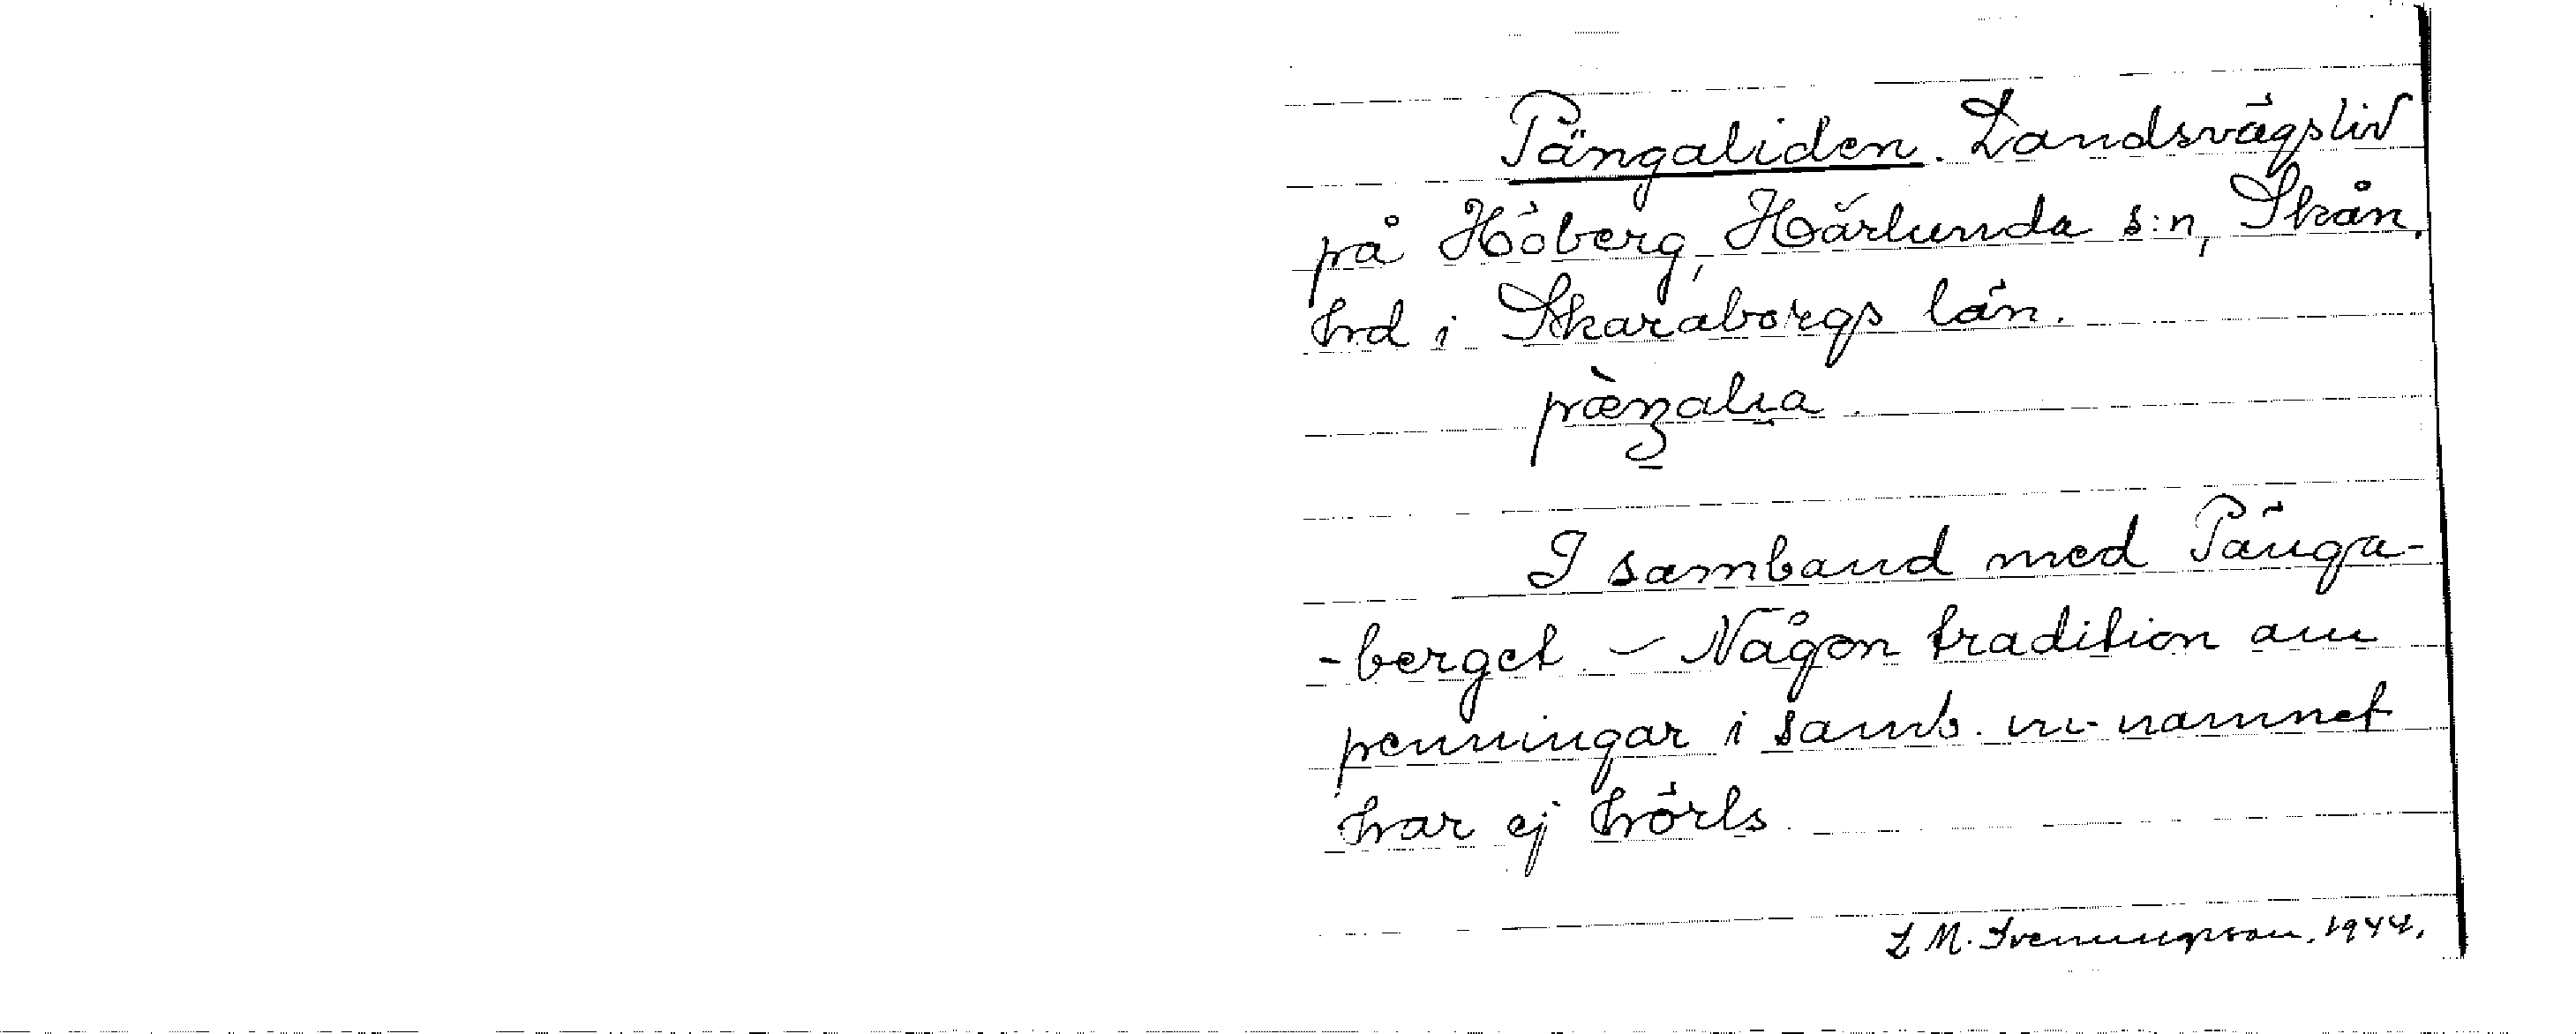 Pängaliden. Landsvägslid
på Höberg, Härlunda s:n, Skån.
hrd i Skaraborgs län.
I samband med Pänga-
-berget – Någon tradition om
penningar i samb. m. namnet
har ej hörts
L M. Svenungsson. 1944.